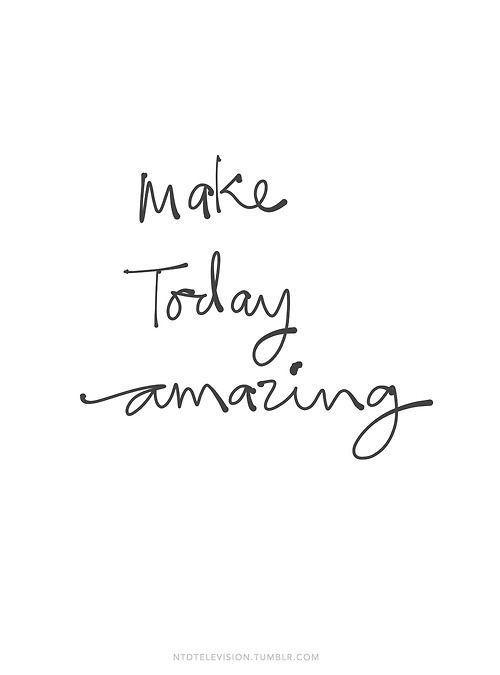 Make
Today
amazing
NTDTELEVISION.TUMBLR.COM